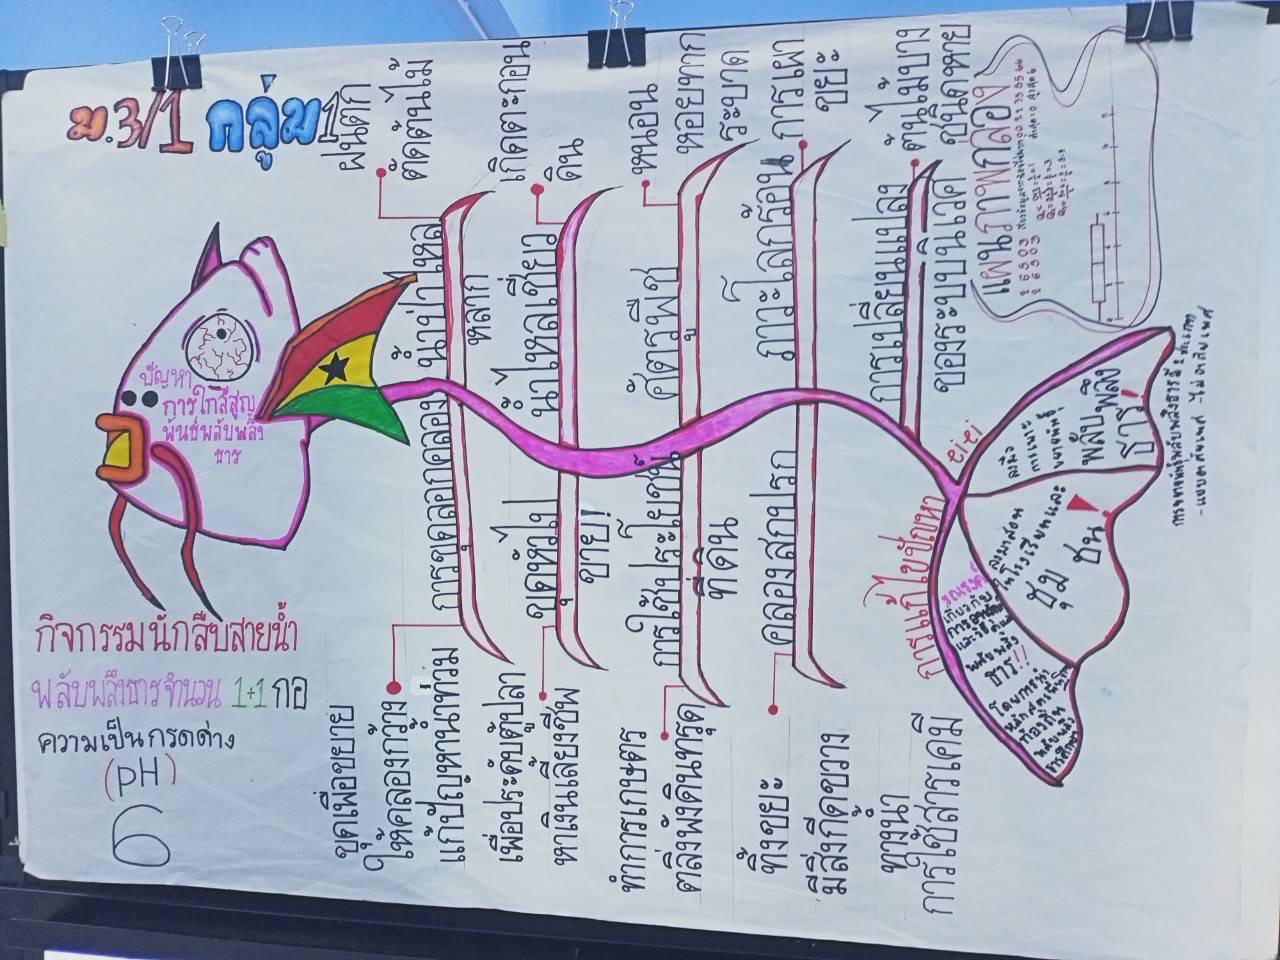 ม.3/1 กลุ่ม 1
ปัญหา
การใกล้สูญ
พันธ์พลับพลึง
ธาร
กิจกรรมนักสืบสายน้ำ
พลับพลึงธารจำนวน 1+1 กอ
ความเป็นกรดด่าง
(pH)
6
ฝนตก
ตัดต้นไม้
น้ำป่าไหล
หลาก
เกิดตะกอน
ดิน
น้ำไหลเชี่ยว
หนอน
หอยทาก
ระบาด
ศัตรูพืช
การเผา
ขยะ
ภาวะโลกร้อน
ต้นไม้บาง
ชนิดหาย
การเปลี่ยนแปลง
ของระบบนิเวศ
การขุดลอกคลอง
ขุดเพื่อขยาย
ให้คลองกว้าง
แก้ปัญหาน้ำท่วม
ขุดหัวไป
ขาย!
เพื่อประดับตู้ปลา
หาเงินเลี้ยงชีพ
การใช้ประโยชน์
ที่ดิน
ทำการเกษตร
ตลิ่งพังดินทรุด
คลองสกปรก
ทิ้งขยะ
มีสิ่งกีดขวาง
ทางน้ำ
การใช้สารเคมี
การแก้ไขปัญหา
แผนภาพกล่อง
พลับพลึง
ธาร!
ชุม
ชน!
รณรงค์
เกี่ยวกับ
ธาร!!
ท้องถิ่น